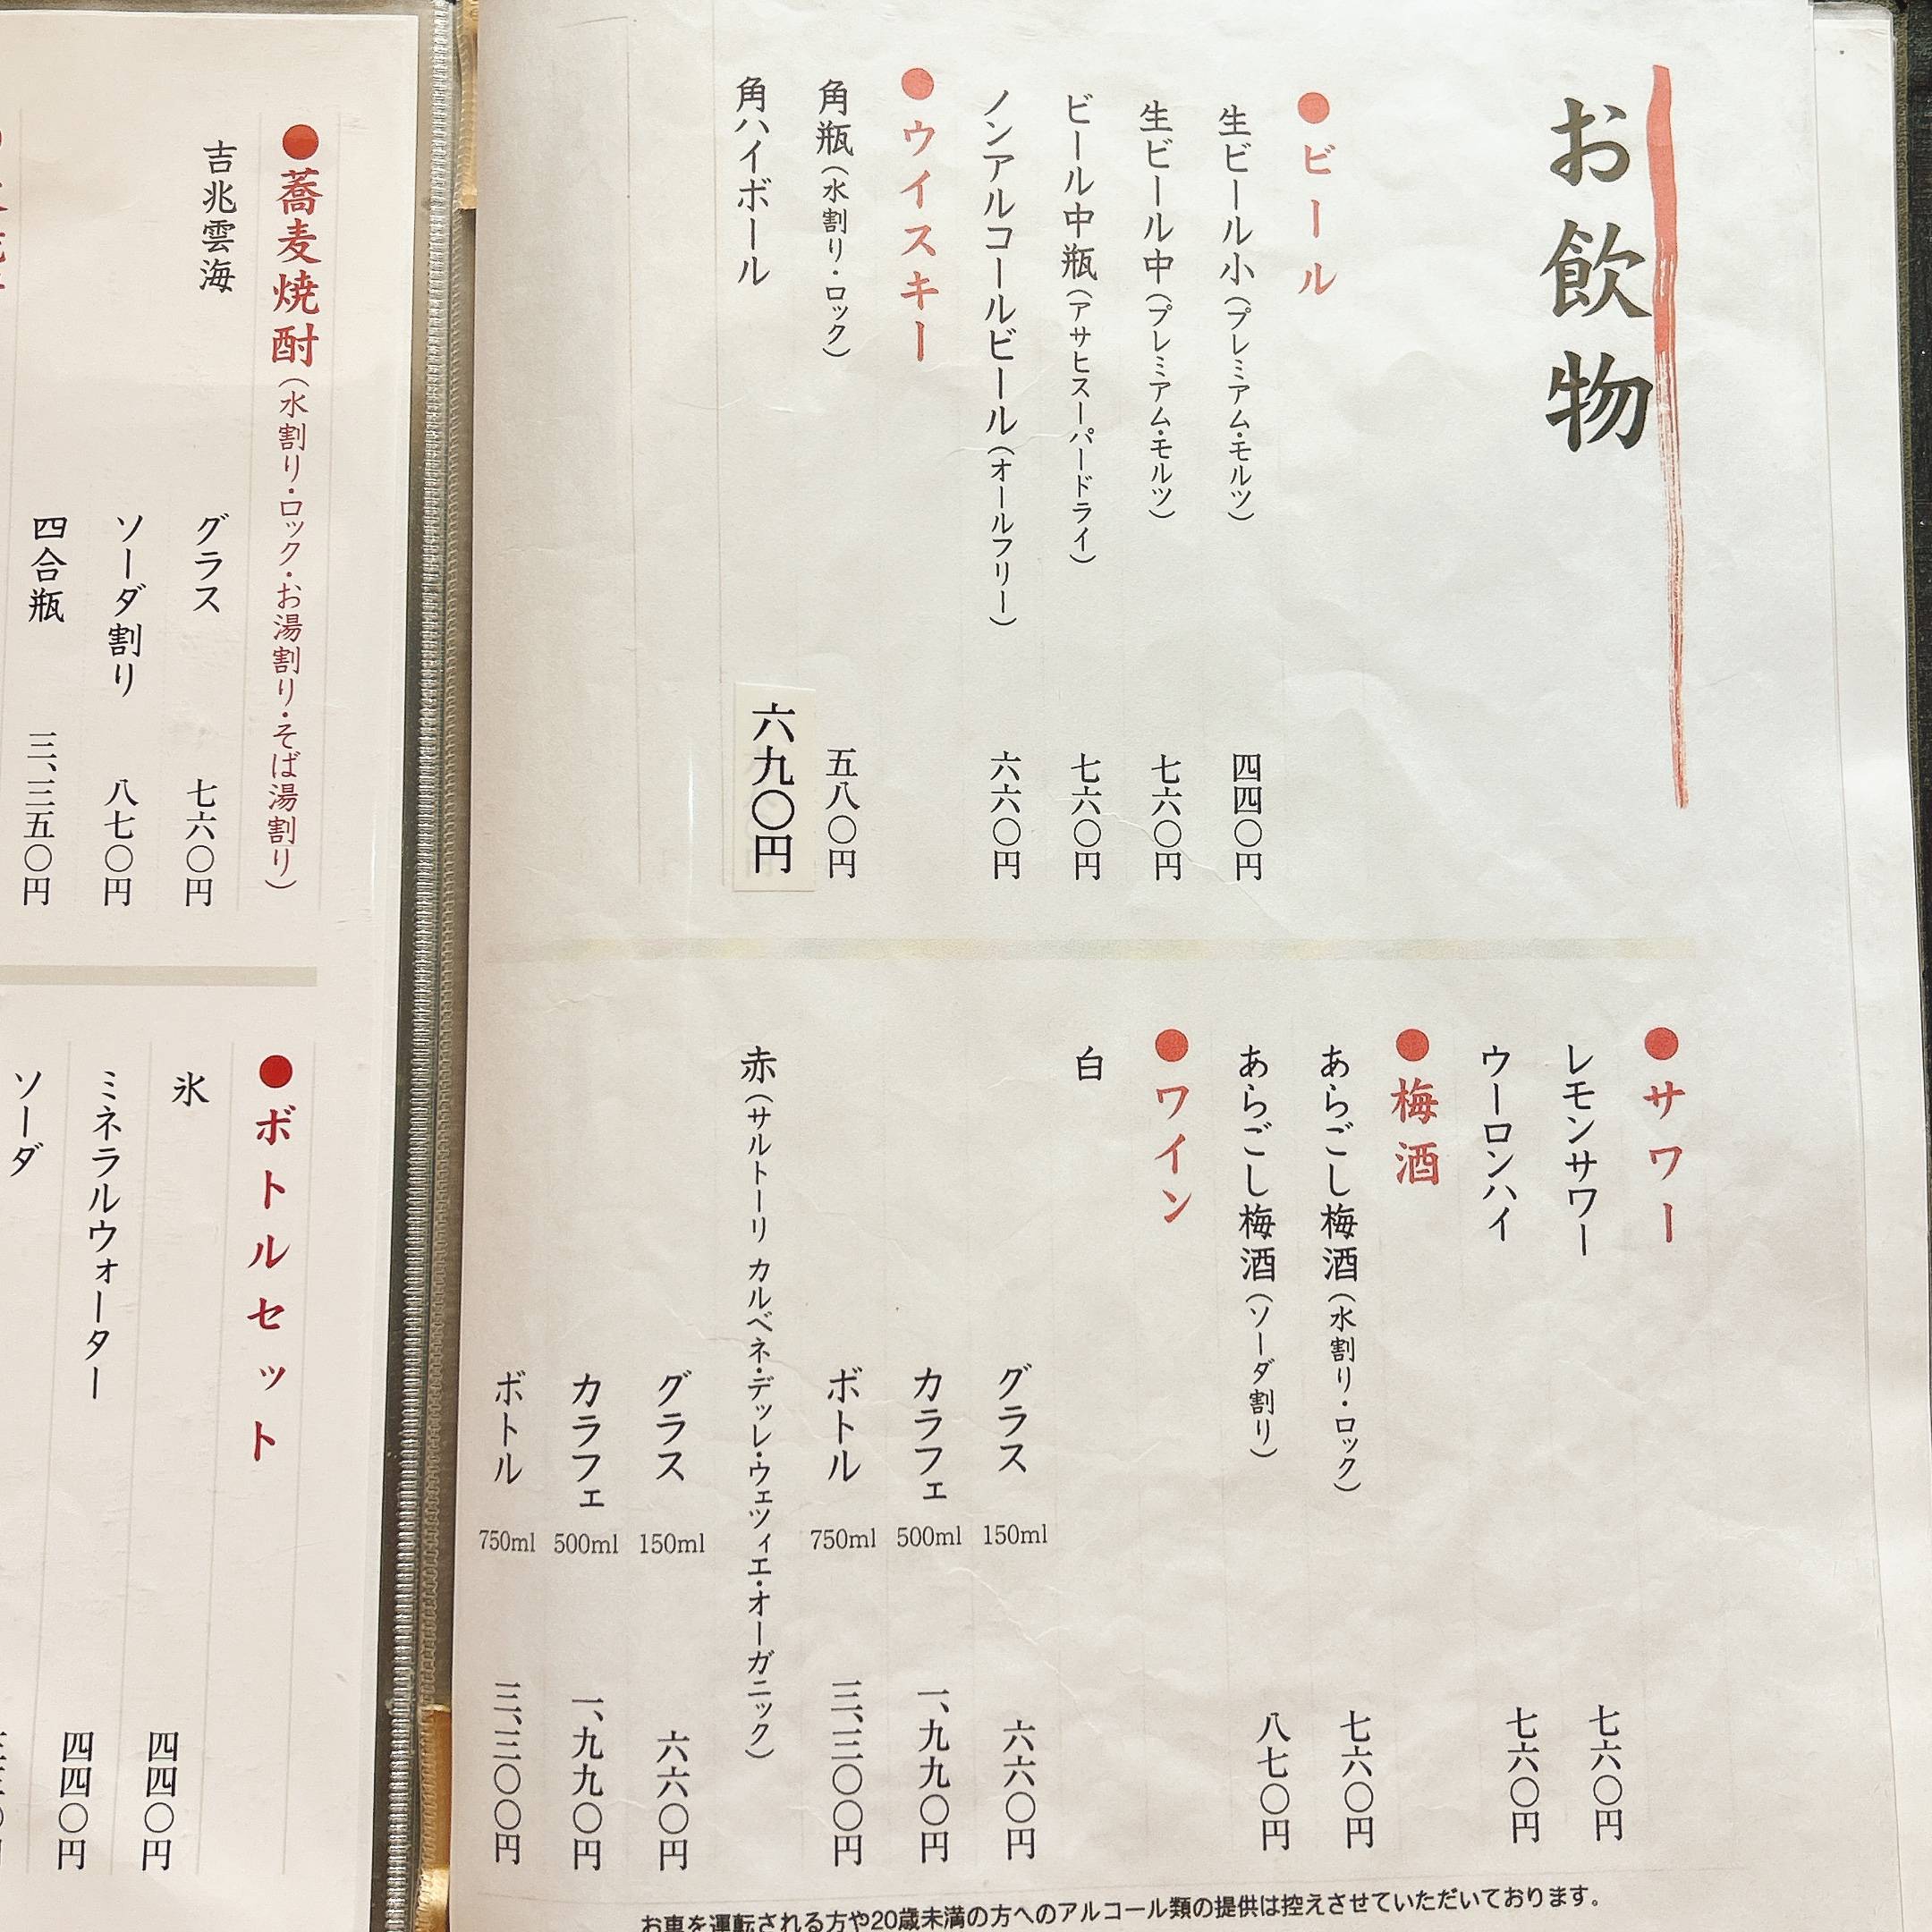 お飲物
●ビール
生ビール小（プレミアム・モルツ） 四四〇円
生ビール中（プレミアム・モルツ） 七六〇円
ビール中瓶（アサヒスーパードライ） 七六〇円
ノンアルコールビール（オールフリー） 六六〇円
●ウイスキー
角瓶（水割り・ロック） 五八〇円
角ハイボール 六九〇円
●サワー
レモンサワー 七六〇円
ウーロンハイ 七六〇円
●梅酒
あらごし梅酒（水割り・ロック） 七六〇円
あらごし梅酒（ソーダ割り） 八七〇円
●ワイン
白
グラス 150ml 六六〇円
カラフェ 500ml 一、九九〇円
ボトル 750ml 三、三〇〇円
赤（サルトーリ カルベネ・デッレ・ウェツィエ・オーガニック）
グラス 150ml 六六〇円
カラフェ 500ml 一、九九〇円
ボトル 750ml 三、三〇〇円
お車を運転される方や20歳未満の方へのアルコール類の提供は控えさせていただいております。
●蕎麦焼酎（水割り・ロック・お湯割り・そば湯割り）
吉兆雲海 グラス 七六〇円
ソーダ割り 八七〇円
四合瓶 三、三五〇円
●ボトルセット
氷 四四〇円
ミネラルウォーター 四四〇円
ソーダ